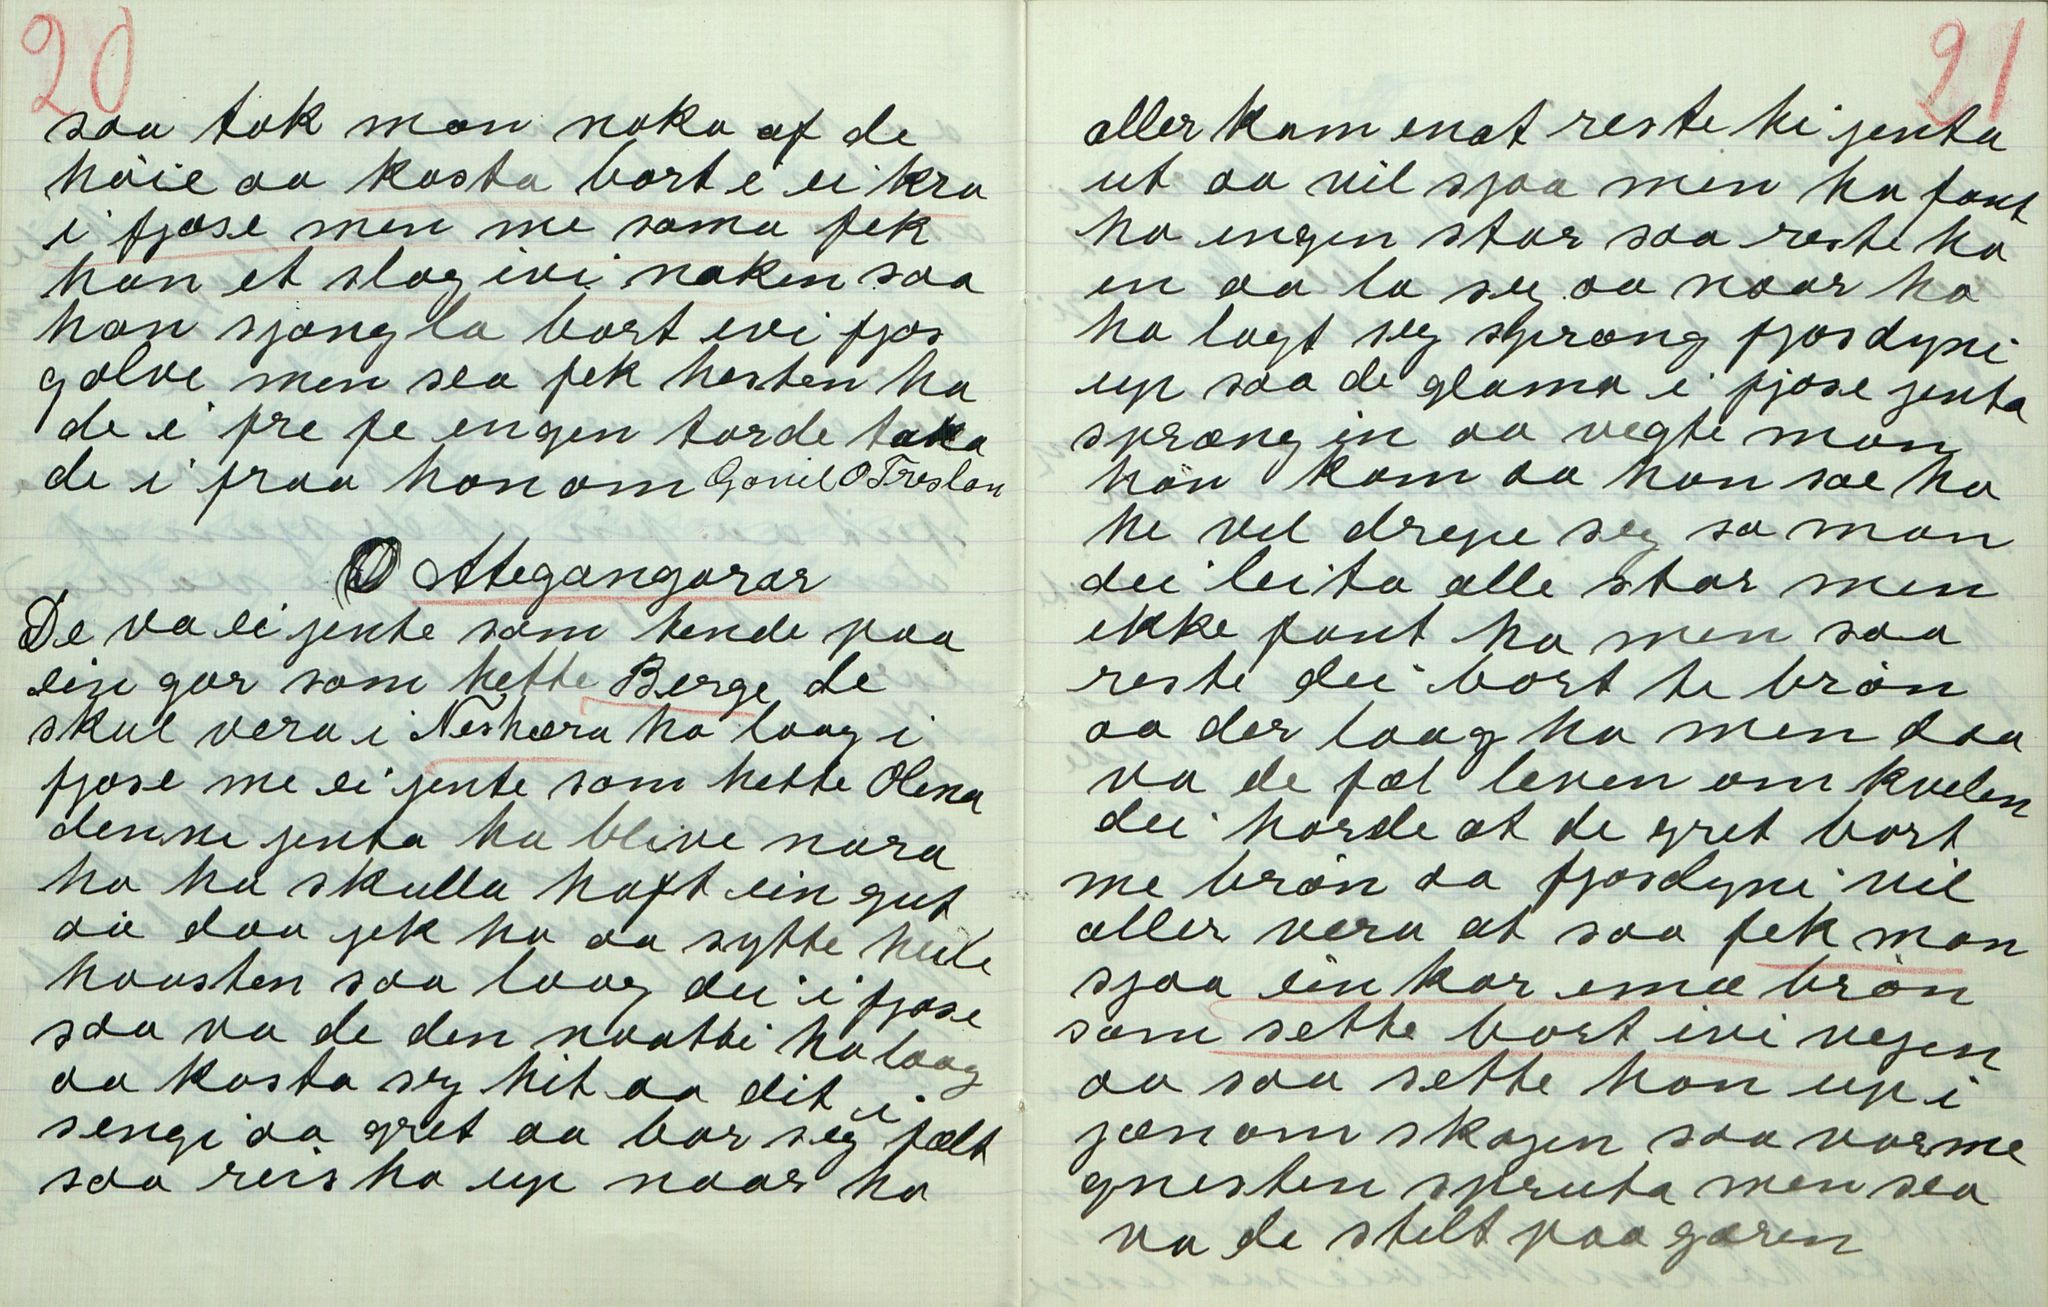 20
saa tok man noko af de
höie aa kosta bort e ei kro
i fjose men me somu fek
han et slag ivi naken saa
han sjangla bort ivi fjos
golve men sea fek hesten ha
de i fre fe engen torde taka
de i fraa honom Gonil O Treslan
Attegangarar
De va ei jente som tende paa
ein gar som hette Berge de
skul vera i Neshæra ho laag i
fjose me ei jente som hette Olena
denne jenta ha blive nora
ho ha skulla haft ein gut
aa daa gek ho aa sytte heile
hausten saa laag dei i fjose
saa va de den naatti ho laag
aa kosta seg hit aa dit i
sengi aa gret aa bar seg fælt
saa reis ho up naar ho
21
aller kom enat reste hi jenta
ut aa vil sjaa men ho fant
ho engen star saa reste ho
en aa la seg aa naar ho
ha lagt seg spræng fjosdyni
up saa de glama i fjose jenta
spræng in aa vegte man
han kom aa han sae ho
he vel drepe seg sa man
dei leita alle star men
ikke fant ho men saa
reste dei bort te brön
aa der laag ho men daa
va de fæl leven om kvelen
dei horde at de gret bort
me brön aa fjosdyni vil
aller vera at saa fek man
sjaa ein kar emæ brön
som sette bort ivi vegen
aa saa sette han up i
jænom skogen saa varme
gnesten spruta men sea
va de stelt paa garen